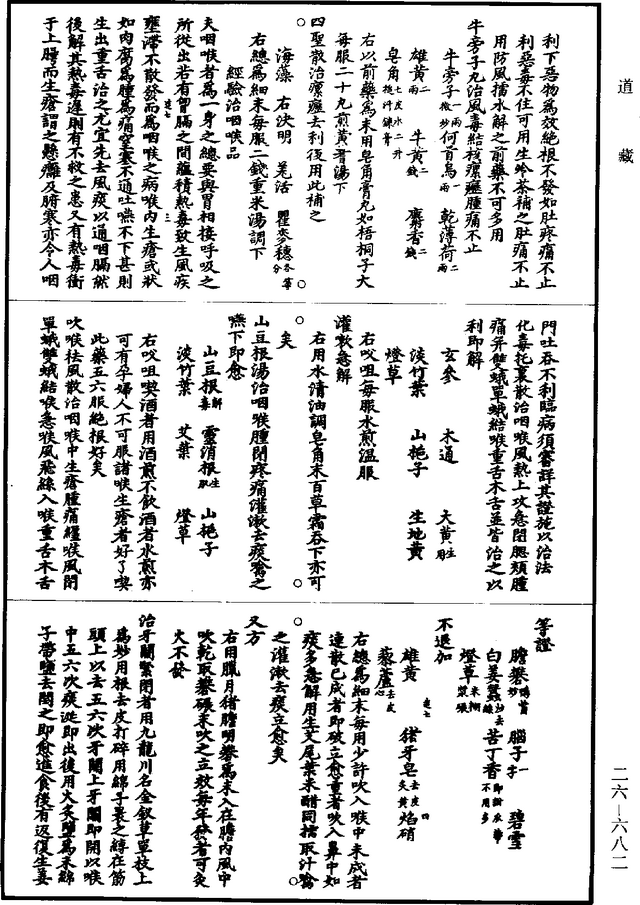 道藏
利下惡物為效絕根不發如肚疼痛不止
利惡毒不住可用生蛉茶補之肚痛不止
用防風擂水解之前藥不可多用
牛旁子丸治風毒結核瘰癧腫痛不止
牛旁子一兩微炒 何首烏一兩 乾薄荷二兩
雄黃二兩 牛黃二錢 麝香二錢
皂角七皮水二升挼汁鍊膏
右以前藥為末用皂角膏丸如梧桐子大
每服二十丸煎黃耆湯下
四聖散治瘰癧去利後用此補之
海藻 石決明 羌活 瞿麥穗各等分
右總為細末每服二錢重米湯調下
經驗治咽喉品
夫咽喉者為一身之總要與胃相接呼吸之
所從出若有胷膈之間蘊積熱毒致生風疾
壅滯不散發而為咽喉之病喉內生瘡或狀
如肉腐為腫為痛窒塞不通吐嚥不下甚則
生出重舌治之尤宜先去風痰以通咽膈然
後解其熱毒遲則有不救之患又有熱毒衝
于上腭而生瘡謂之懸癰及腑寒亦令人咽
門吐吞不利臨病須審詳其證施以治法
化毒托裏散治咽喉風熱上攻急閉腮頰腫
痛并雙蛾單蛾結喉重舌木舌並皆治之以
利即解
玄參 木通 大黃生用
淡竹葉 山梔子 生地黃
燈草
右㕮咀每服水煎溫服
灌漱急解
右用水清油調皂角末百草霜吞下亦可
矣
山豆根湯治咽喉腫閉疼痛灌漱去痰嚼之
嚥下即愈
山豆根解毒 靈消根生肌 山梔子
淡竹葉 艾葉 燈草
右㕮咀喫酒者用酒煎不飲酒者水煎亦
可有孕婦人不可服諸喉生瘡者好了喫
此藥五六服絕根好矣
吹喉祛風散治咽喉中生瘡腫痛纏喉風閉
單蛾雙蛾結喉急喉風飛絲入喉重舌木舌
等證
膽礬鴨嘴炒 腦子一字 碧雪
白姜蠶炒去絲 苦丁香
燈草米糊漿碾
不退加
雄黃 猪牙皂去皮炙黃 焰硝
藜蘆去心
右總為細末每用少許吹入喉中未成者
速散已成者即破立愈重者吹入鼻中如
痰多急解用生艾尾葉米醋同擂取汁嚼
之灌漱去痰立愈矣
又方
右用臘月猪膽明礬為末入在膽內風中
吹乾取礬碾末吹之立效每年發者可灸
火不發
治牙關緊閉者用九龍川名金釵草單枝上
為妙用根去皮打碎用綿子裹之縛在筯
頭上以去五六次牙關上牙關即開以喉
中五六次痰涎即出後用火炙鹽為末綿
子帶鹽去閣之即愈進食後有返復生姜
二六—六八二